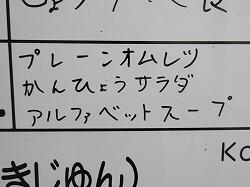 プレーンオムレツ
かんひょうサラダ
アルファベットスープ
きじゅん)
KC